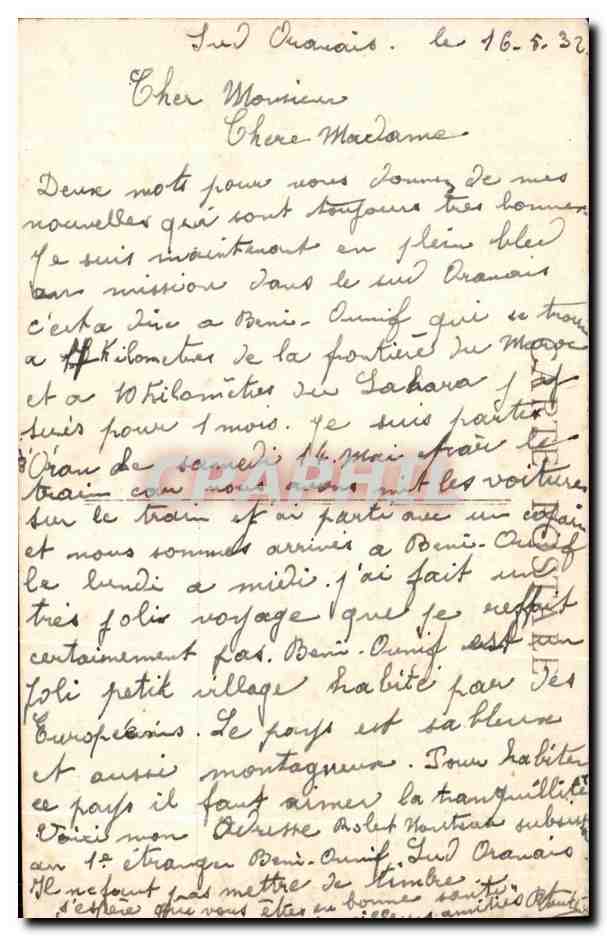 Sud Oranais. le 16-5.32
Cher Monsieur
Chere Madame
Deux mots pour vous donnez de mes
nouvelles qui sont toujours tres bonnes
Je suis maintenant en plein bled
en mission dans le sud Oranais
c'est a dire a Beni-Ounif qui se trouve
a Kilometres de la frontiere du Maroc
et a 10 Kilomètres du Sahara j'y
serés pour 1 mois. Je suis partis
Oran le samedi 14 Mai par le
train car nous avons mit les voitures
sur le train et j'ai parti avec un copain
et nous sommes arrivés a Beni-Ounif
le lundi a midi. j'ai fait un
trés joli voyage que je refait
certainement pas. Beni-Ounif est un
Joli petit village habité par des
Européens. Le pays est sableux
et aussi montagneux. Pour habiter
ce pays il faut aimer la tranquillité
Voici mon Adresse Robert subsis
au 1e étranger Beni-Ounif Sud Oranais
Il ne faut pas mettre de timbre.
J'espère que vous êtes en bonne santé
amitiés
CARTE POSTALE
CPAPHIL